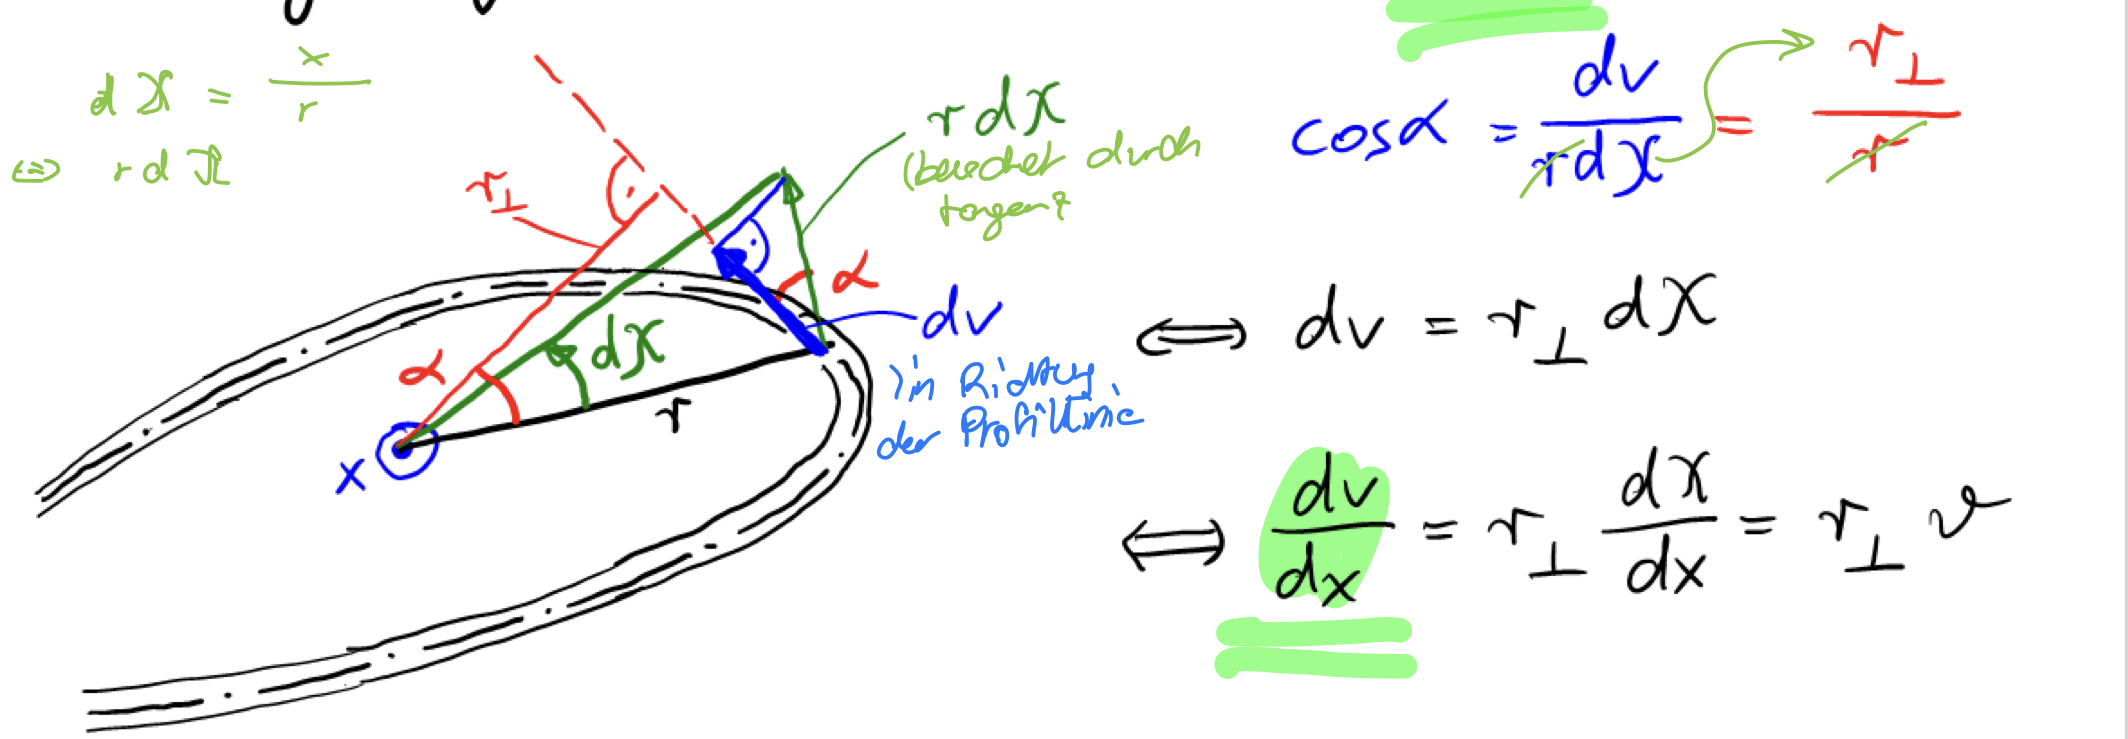 dχ = x / r
⇔ r dχ
r⊥
r dχ
(berechnet durch
tangens?
α
dv
in Richtung
der Profillinie
α
dχ
r
x
cosα = dv / r dχ = r⊥ / r
⇔ dv = r⊥ dχ
⇔ dv / dx = r⊥ dχ / dx = r⊥ ϑ